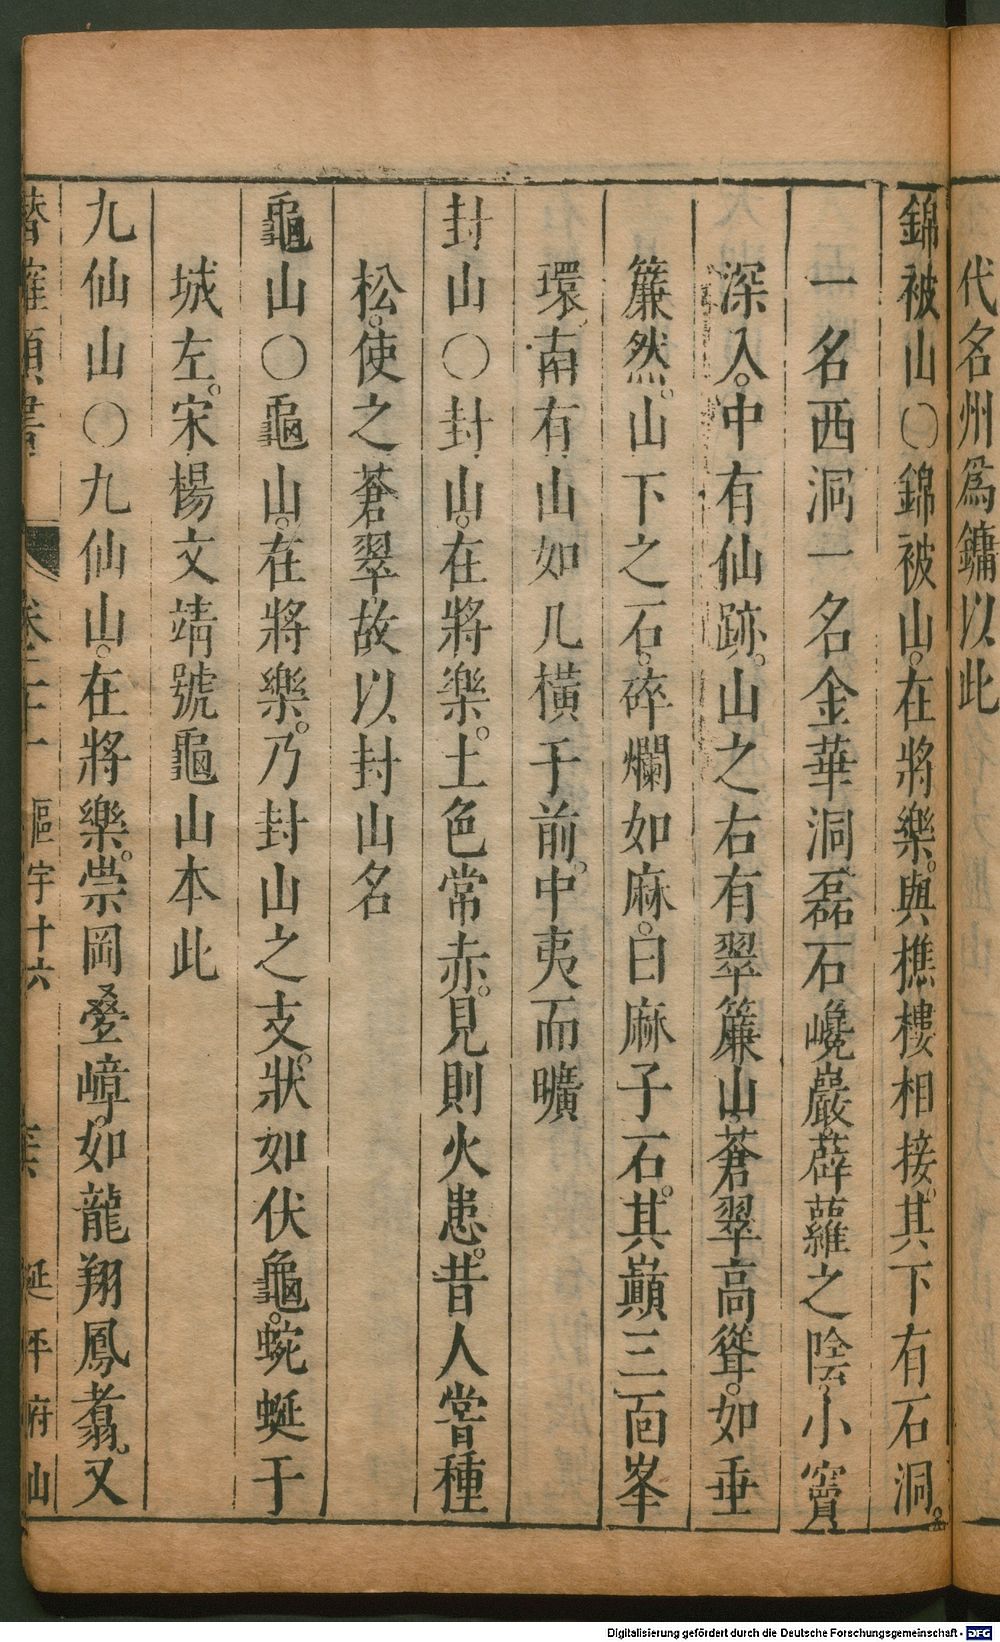 代名州爲鏞以此
錦被山○錦被山。在將樂。與樵樓相接。其下有石洞。
一名西洞一名金華洞磊石巉巖。薜蘿之陰。小竇
深入。中有仙跡。山之右有翠簾山。蒼翠高聳。如垂
簾然。山下之石。碎爛如麻。曰麻子石。其巔三面峯
環。南有山如几橫于前。中夷而曠
封山○封山。在將樂。土色常赤。見則火患。昔人嘗種
松。使之蒼翠。故以封山名
龜山○龜山。在將樂。乃封山之支。狀如伏龜。蜿蜒于
城左。宋楊文靖號龜山本此
九仙山○九仙山。在將樂。崇岡疊嶂。如龍翔鳳翥。又
卷二十一 區宇十六 延平府山
Digitalisierung gefördert durch die Deutsche Forschungsgemeinschaft - DFG